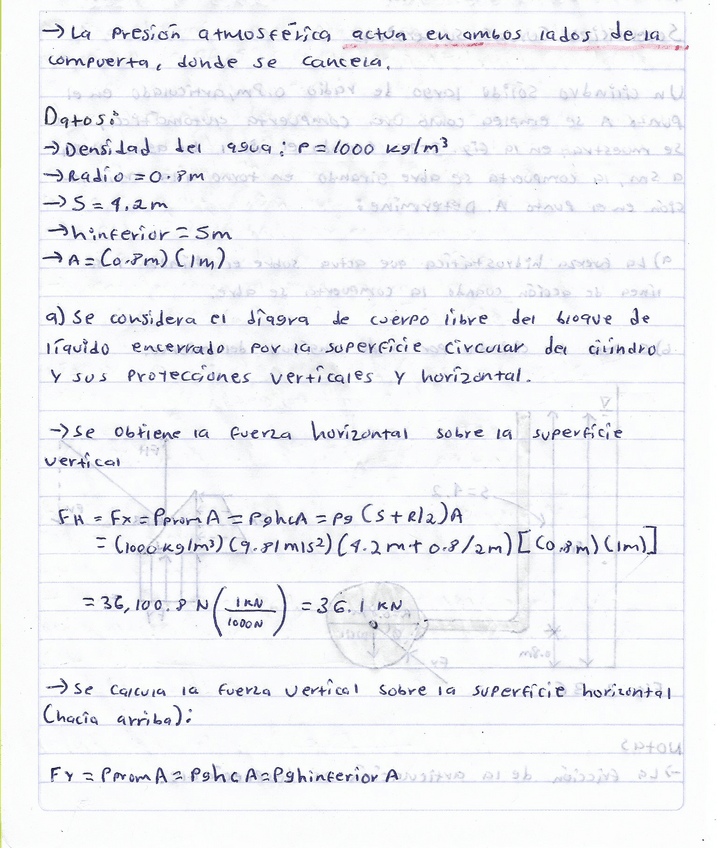 → La Presión atmosférica actua en ambos lados de la
compuerta, donde se cancela.
Datos:
→ Densidad del agua: ρ = 1000 kg/m³
→ Radio = 0.8m
→ S = 4.2m
→ hinferior = 5m
→ A = (0.8m) (1m)
a) Se considera el diagra de cuerpo libre del bloque de
líquido encerrado por la superficie circular del cilindro
y sus proyecciones verticales y horizontal.
→ Se obtiene la fuerza horizontal sobre la superficie
vertical
FH = Fx = PpromA = ρghcA = ρg (S + R/2) A
= (1000 kg/m³) (9.81 m/s²) (4.2 m + 0.8/2m) [(0.8m) (1m)]
= 36,100.8 N (1 KN / 1000N) = 36.1 KN
→ Se calcula la fuerza vertical sobre la superficie horizontal
(hacia arriba):
Fy = PpromA = ρghcA = ρghinferior A